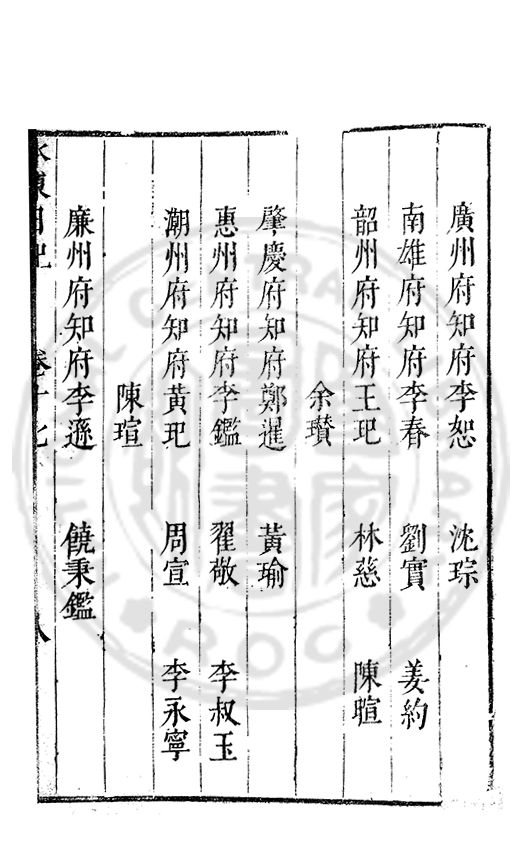 廣州府知府李恕 沈琮
南雄府知府李春 劉實 姜約
韶州府知府王玘 林慈 陳暄
余瓚
肇慶府知府鄭暹 黃瑜
惠州府知府李鑑 翟敬 李叔玉
潮州府知府黃玘 周宣 李永寧
陳瑄
廉州府知府李遜 饒秉鑑
水東日記 卷十 八